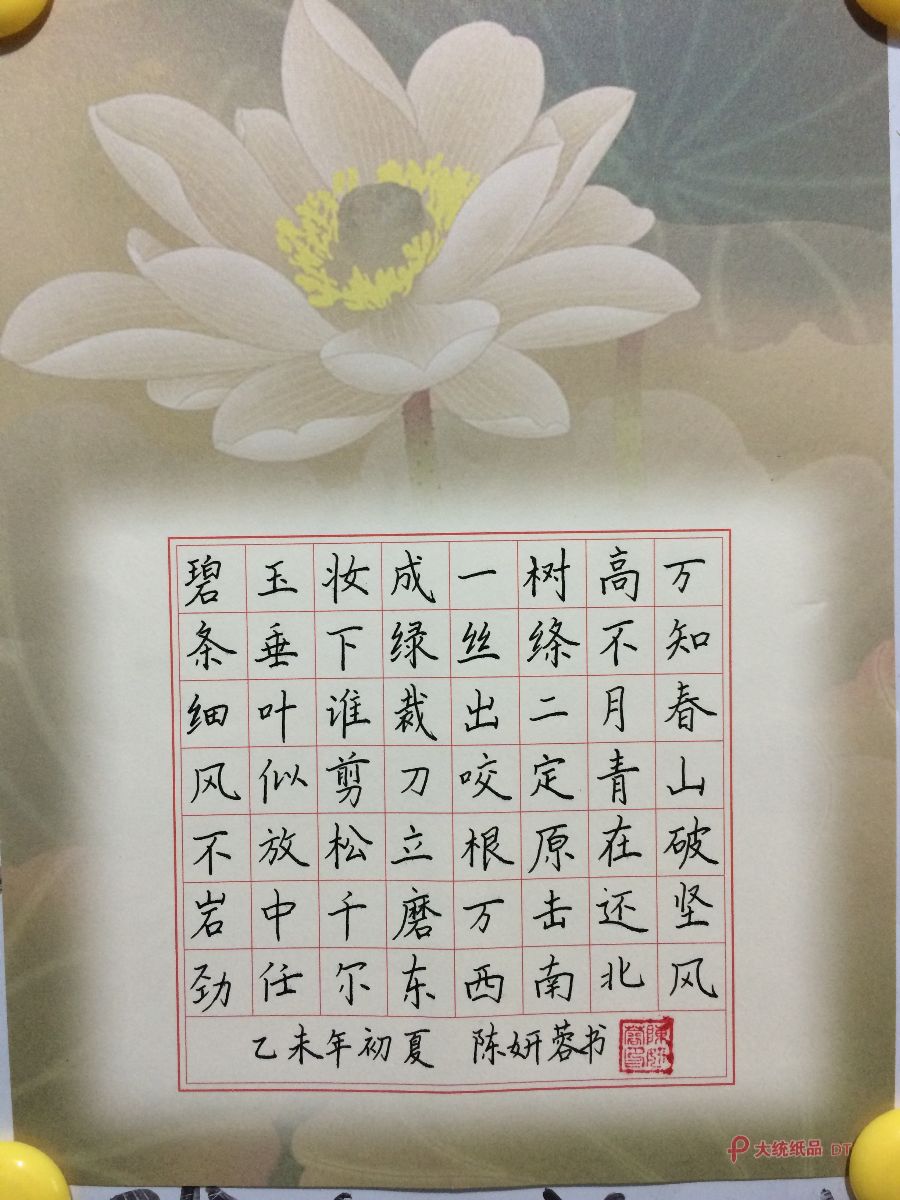 碧玉妆成一树高万
条垂下绿丝绦不知
细叶谁裁出二月春
风似剪刀咬定青山
不放松立根原在破
岩中千磨万击还坚
劲任尔东西南北风
乙未年初夏 陈妍蓉书
大统纸品 DT